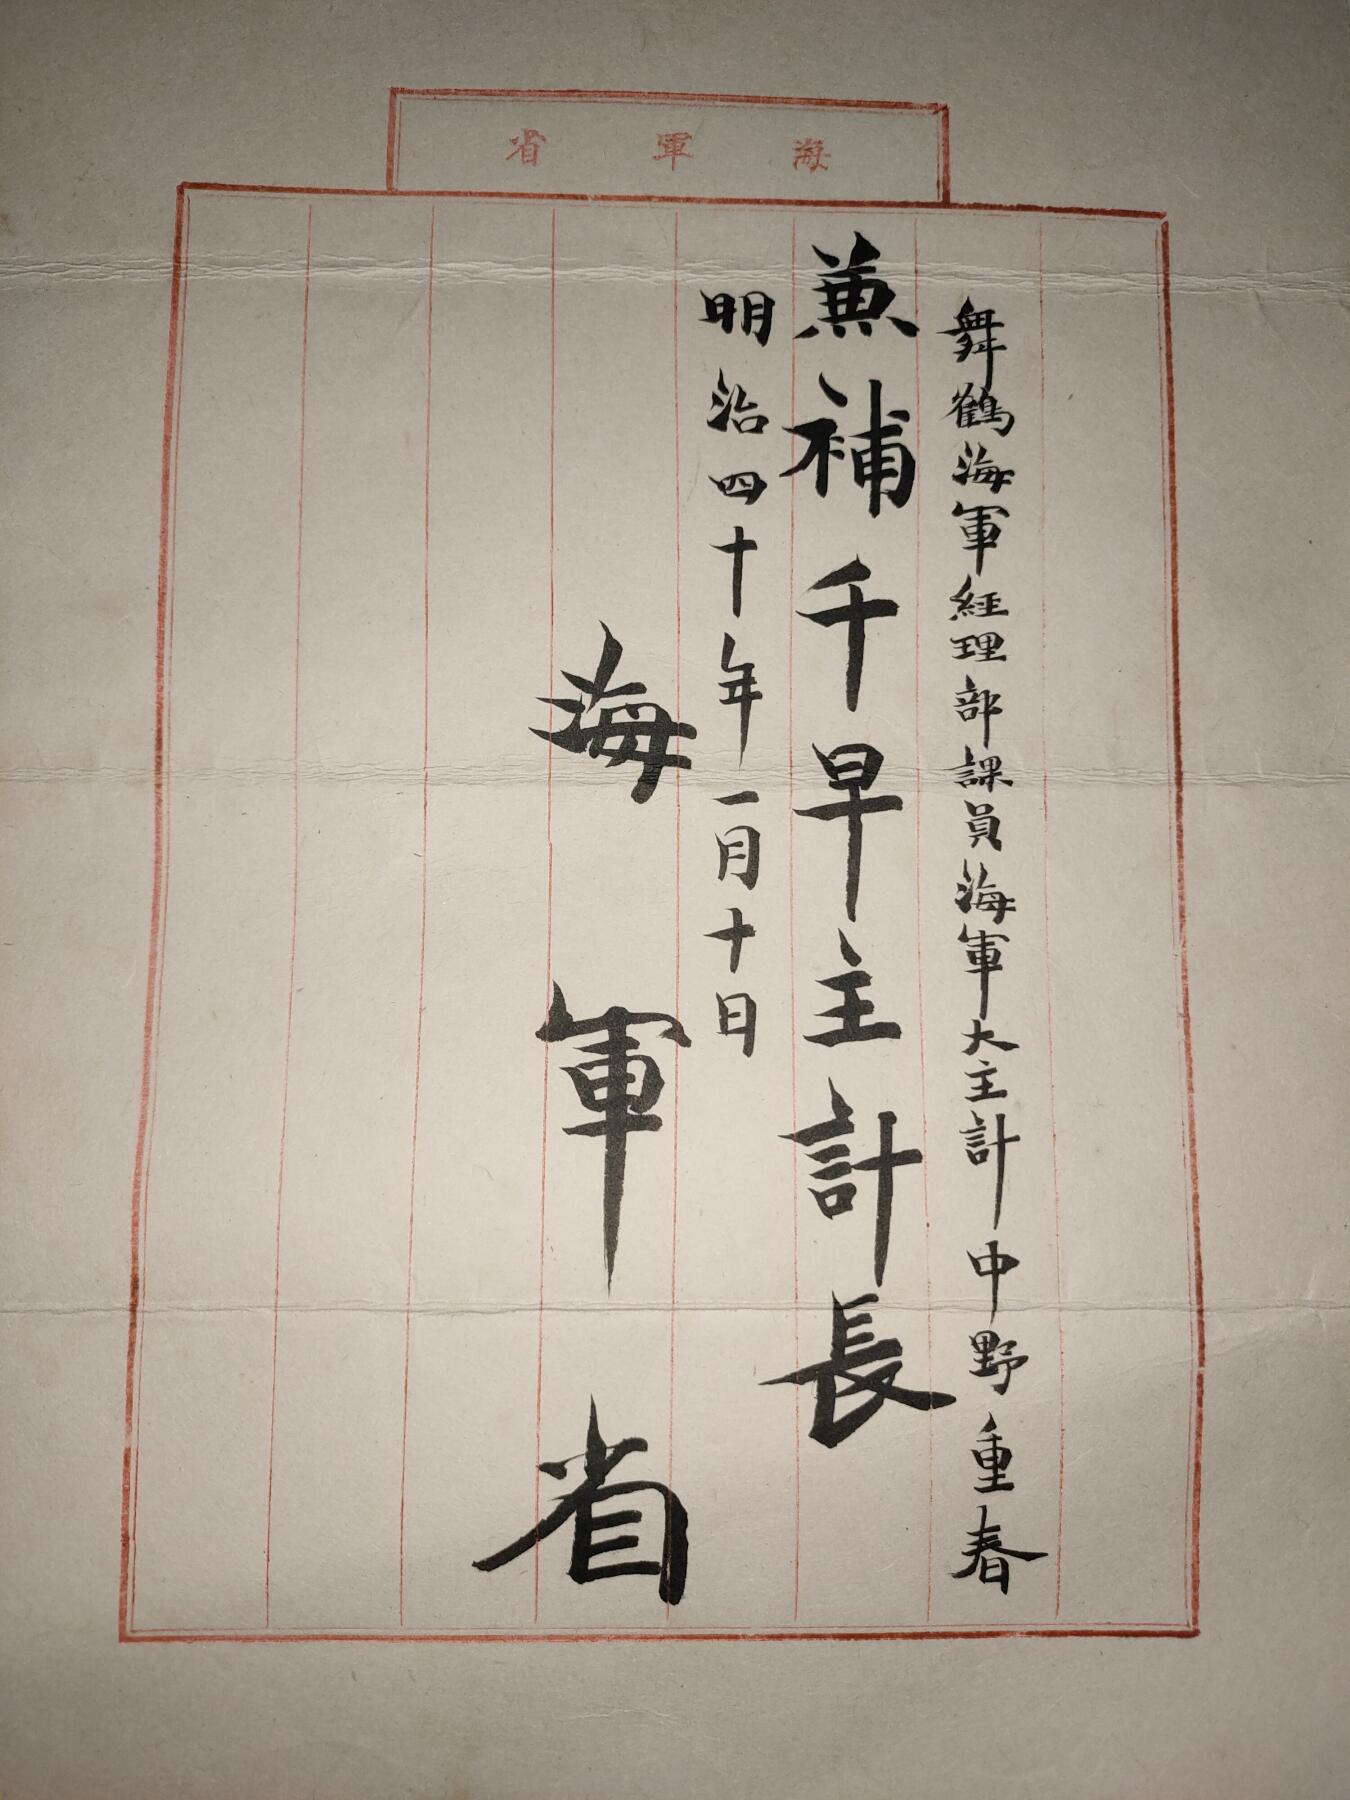 海軍省
舞鶴海軍経理部課員海軍大主計中野重春
兼補千早主計長
明治四十年一月十日
海軍省